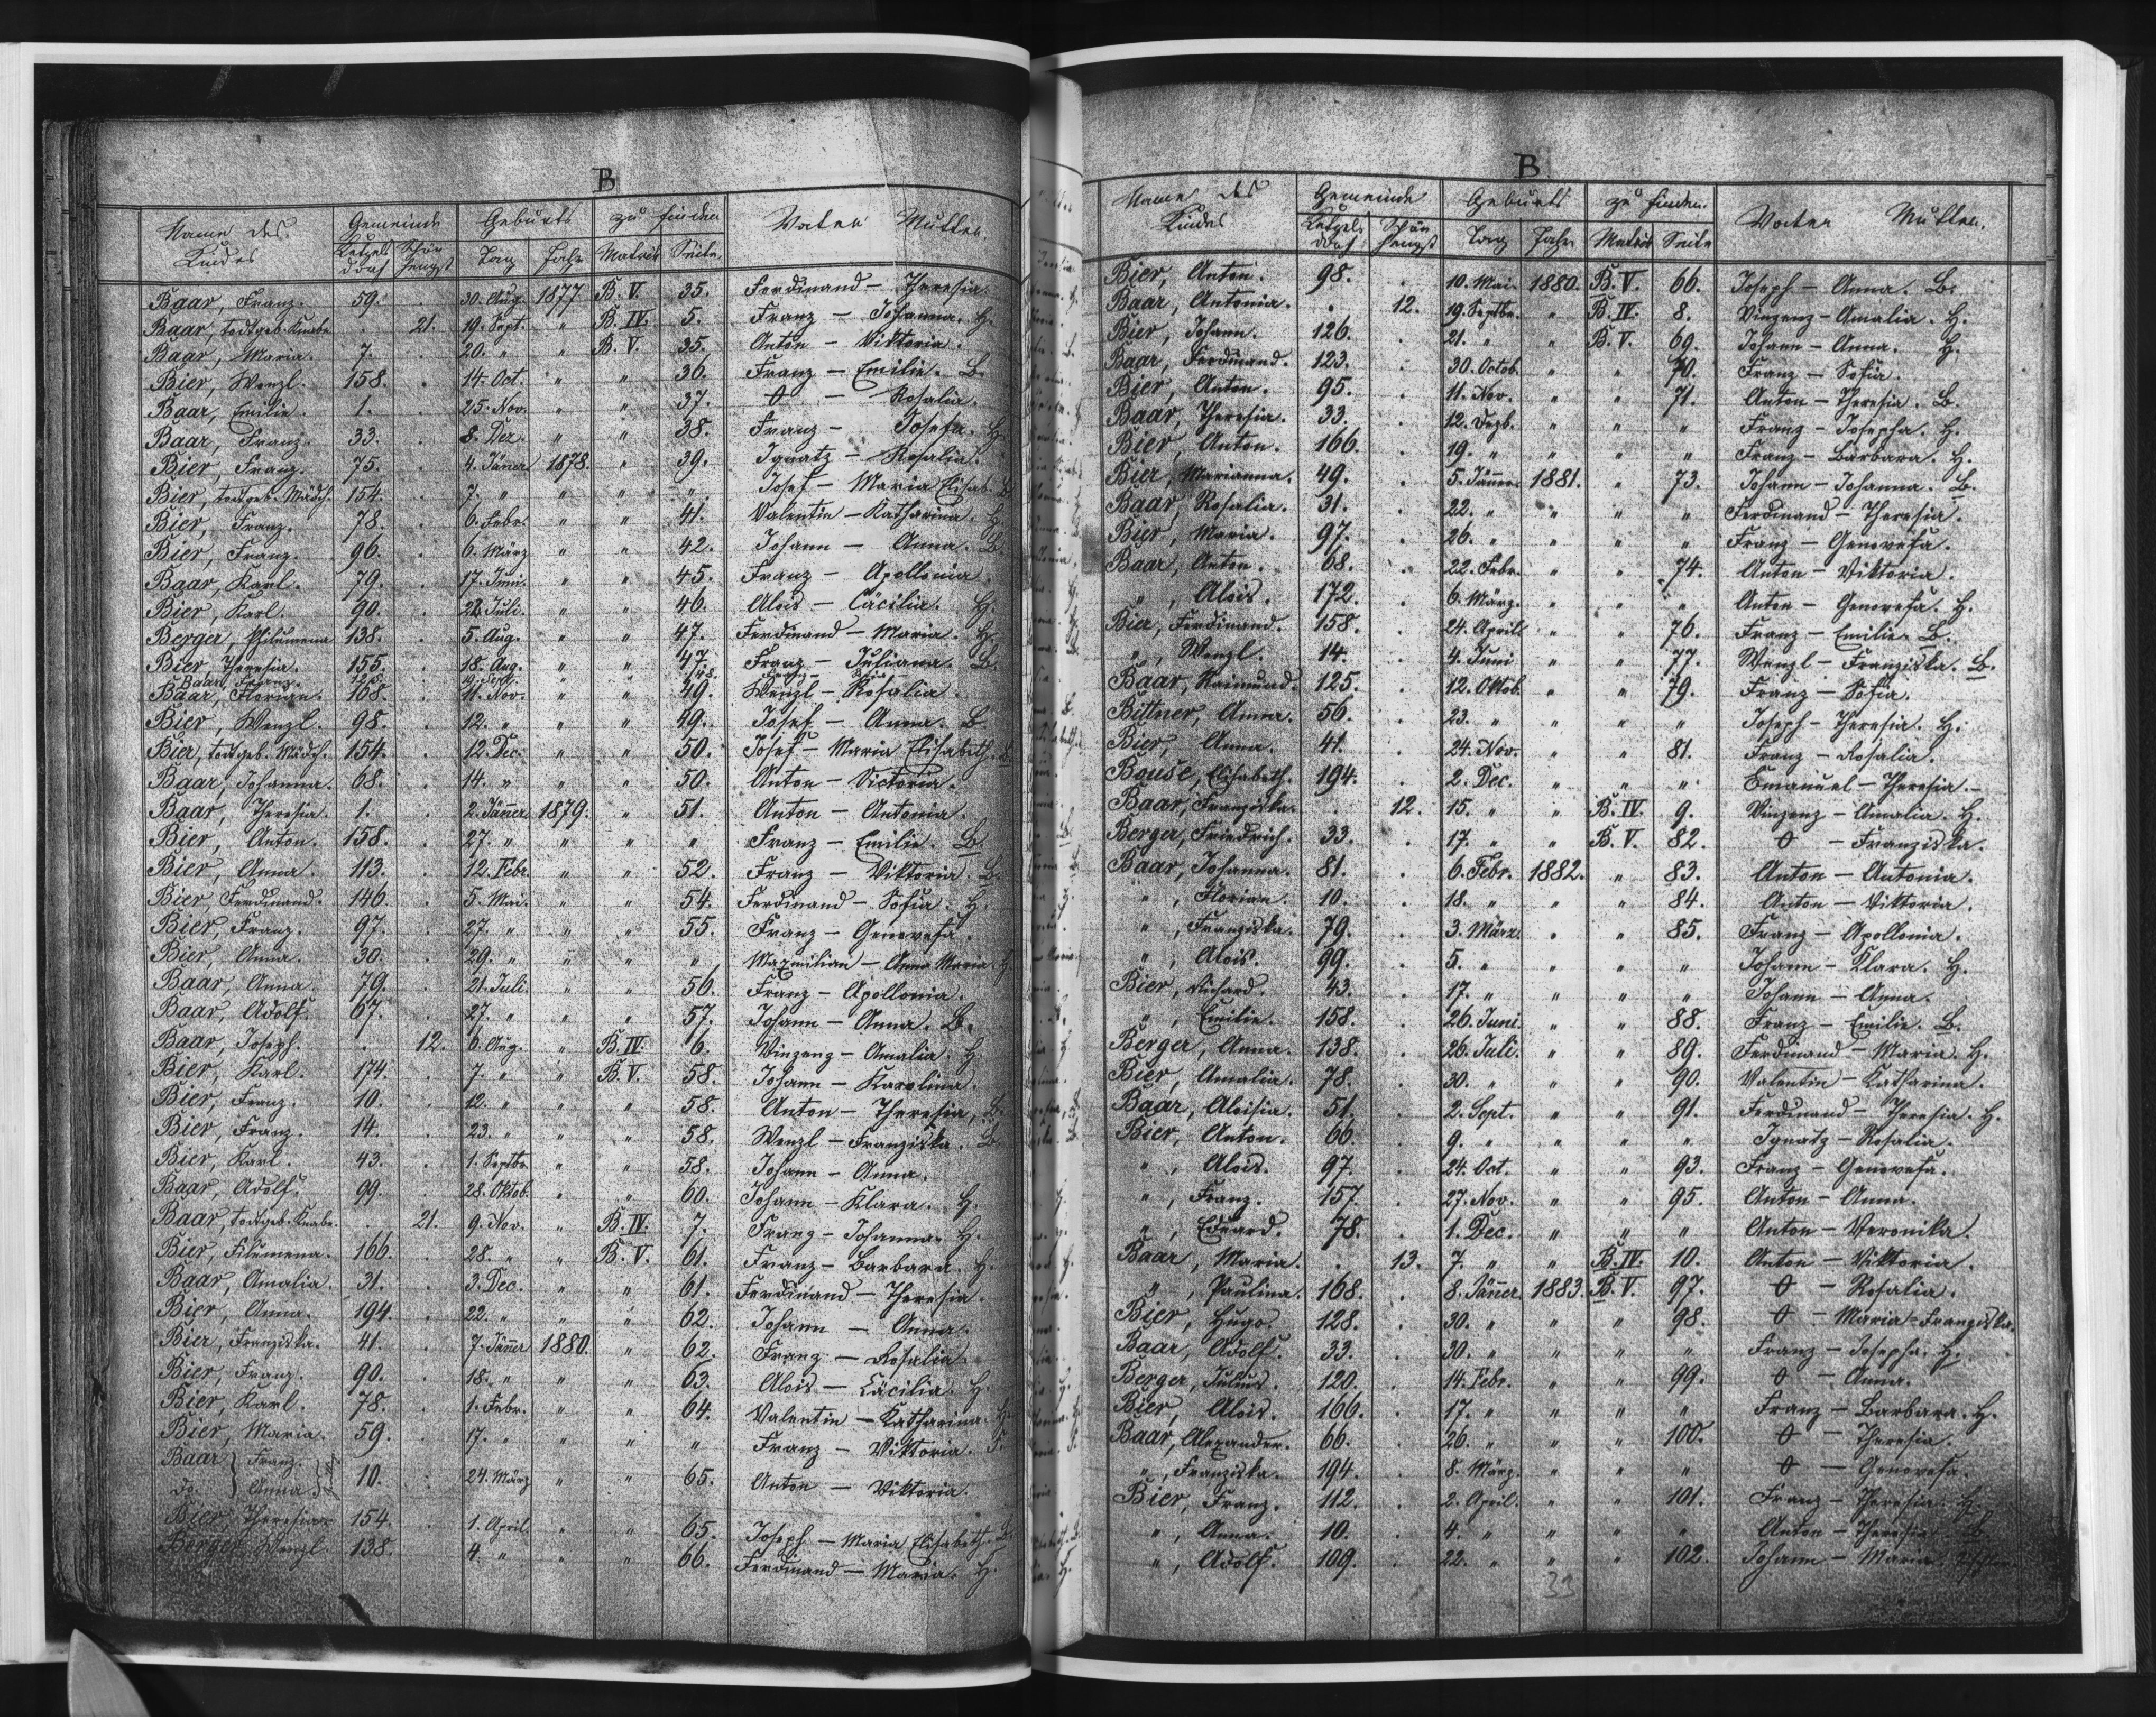 B
Name des Kindes Gemeinde Geburts zu finden Vater Mutter.
Ketzelsdorf Schönhengst Tag Jahr Matrik Seite
Baar, Franz. 59. . 30. Aug. 1877 B. V. 35. Ferdinand – Theresia.
Baar, todtgeb. Knabe . 21. 19. Sept. " B. IV. 5. Franz – Johanna. H.
Baar, Maria. 7. . 20. " " B. V. 35. Anton – Viktoria.
Bier, Wenzl. 158. . 14. Oct. " " 36. Franz – Emilie. B.
Baar, Emilie. 1. . 25. Nov. " " 37. O – Rosalia.
Baar, Franz. 33. . 8. Dez. " " 38. Franz – Josefa. H.
Bier, Franz. 75. . 4. Jäner 1878. " 39. Ignatz – Rosalia.
Bier, todtgeb. Mädch. 154. . 7. " " " " Josef – Maria Elisab. B.
Bier, Franz. 78. . 6. Febr. " " 41. Valentin – Katharina. H.
Bier, Franz. 96. . 6. März " " 42. Johann – Anna. B.
Baar, Karl. 79. . 17. Juni. " " 45. Franz – Apollonia.
Bier, Karl. 90. . 28. Juli. " " 46. Alois – Cäcilia. H.
Berger, Philumena 138. . 5. Aug. " " 47. Ferdinand – Maria. H.
Bier, Theresia. 155. . 18. Aug. " " 47. Franz – Juliana. B.
Baar, Franz. 19. Sept. 48. Franz –
Baar, Florian. 168. . 11. Nov. " " 49. Wenzl – Rosalia.
Bier, Wenzl. 98. . 12. " " " 49. Josef – Anna. B.
Bier, todtgeb. Mädch. 154. . 12. Dec. " " 50. Josef – Maria Elisabeth. B.
Baar, Johanna. 68. . 14. " " " 50. Anton – Victoria.
Baar, Theresia. 1. . 2. Jänner 1879. " 51. Anton – Antonia.
Bier, Anton. 158. . 27. " " " " Franz – Emilie. B.
Bier, Anna. 113. . 12. Febr. " " 52. Franz – Viktoria. B.
Bier Ferdinand. 146. . 5. Mai. " " 54. Ferdinand – Sofia. H.
Bier, Franz. 97. . 27. " " " 55. Franz – Genovefa.
Bier, Anna. 30. . 29. " " " " Maxmilian – Anna Maria. H.
Baar, Anna. 79. . 21. Juli. " " 56. Franz – Apollonia.
Baar, Adolf. 67. . 27. " " " 57. Johann – Anna. B.
Baar, Joseph. . 12. 6. Aug. " B. IV. 6. Vinzenz – Amalia. H.
Bier, Karl. 174. . 7. " " B. V. 58. Johann – Karolina.
Bier, Franz. 10. . 12. " " " 58. Anton – Theresia, B.
Bier, Franz. 14. . 23. " " " 58. Wenzl – Franziska. B.
Bier, Karl. 43. . 1. Septbr. " " 58. Johann – Anna.
Baar, Adolf. 99. . 28. Oktob. " " 60. Johann – Klara. H.
Baar, todtgeb. Knabe. . 21. 9. Nov. " B. IV. 7. Franz – Johanna. H.
Bier, Filumena. 166. . 28. " " B. V. 61. Franz – Barbara. H.
Baar, Amalia. 31. . 3. Dec. " " 61. Ferdinand – Theresia.
Bier, Anna. 194. . 22. " " " 62. Johann – Anna.
Bier, Franziska. 41. . 7. Jänner 1880. " 62. Franz – Rosalia.
Bier, Franz. 90. . 18. " " " 63. Alois – Cäcilia. H.
Bier, Karl. 78. . 1. Febr. " " 64. Valentin – Katharina. H.
Bier, Maria. 59. . 17. " " " " Franz – Viktoria.
Baar Franz.
do. Anna. 10. . 24. März " " 65. Anton – Viktoria.
Bier, Theresia. 154. . 1. April. " " 65. Joseph – Maria Elisabeth. B.
Berger, Wenzl. 138. . 4. " " " 66. Ferdinand – Maria. H.
B
Name des Kindes Gemeinde Geburts zu finden. Vater Mutter.
Ketzelsdorf Schönhengst Tag Jahr Matrik Seite
Bier, Anton. 98. . 10. Mai. 1880. B. V. 66. Joseph – Anna. B.
Baar, Antonia. . 12. 19. Septbr. " B. IV. 8. Vinzenz – Amalia. H.
Bier, Johann. 126. . 21. " " B. V. 69. Johann – Anna. H.
Baar, Ferdinand. 123. . 30. Octob. " " 70. Franz – Sofia.
Bier, Anton. 95. . 11. Nov. " " 71. Anton – Theresia. B.
Baar, Theresia. 33. . 12. Dezb. " " " Franz – Josepha. H.
Bier, Anton. 166. . 19. " " " " Franz – Barbara. H.
Bier, Marianna. 49. . 5. Jänner 1881. " 73. Johann – Johanna. B.
Baar, Rosalia. 31. . 22. " " " " Ferdinand – Theresia.
Bier, Maria. 97. . 26. " " " " Franz – Genovefa.
Baar, Anton. 68. . 22. Febr. " " 74. Anton – Viktoria.
" , Alois. 172. . 6. März. " " " Anton – Genovefa. H.
Bier, Ferdinand. 158. . 24. April " " 76. Franz – Emilie. B.
" , Wenzl. 14. . 4. Juni " " 77. Wenzl – Franziska. B.
Baar, Raimund. 125. . 12. Oktob. " " 79. Franz – Sofia.
Bittner, Anna. 56. . 23. " " " " Joseph – Theresia. H.
Bier, Anna. 41. . 24. Nov. " " 81. Franz – Rosalia.
Bouše, Elisabeth. 194. . 2. Dec. " " " Emanuel – Theresia.
Baar, Franziska. . 12. 15. " " B. IV. 9. Vinzenz – Amalia. H.
Berger, Friedrich. 33. . 17. " " B. V. 82. O – Franziska.
Baar, Johanna. 81. . 6. Febr. 1882. " 83. Anton – Antonia.
" , Florian. 10. . 18. " " " 84. Anton – Viktoria.
" , Franziska. 79. . 3. März. " " 85. Franz – Apollonia.
" , Alois. 99. . 5. " " " " Johann – Klara. H.
Bier, Richard. 43. . 17. " " " " Johann – Anna.
" , Emilie. 158. . 26. Juni. " " 88. Franz – Emilie. B.
Berger, Anna. 138. . 26. Juli. " " 89. Ferdinand – Maria. H.
Bier, Amalia. 78. . 30. " " " 90. Valentin – Katharina.
Baar, Aloisia. 51. . 2. Sept. " " 91. Ferdinand – Theresia. H.
Bier, Anton. 66. . 9. " " " " Ignatz – Rosalia.
" , Alois. 97. . 24. Oct. " " 93. Franz – Genovefa.
" , Franz. 157. . 27. Nov. " " 95. Anton – Anna.
" , Eduard. 78. . 1. Dec. " " " Anton – Veronika.
Baar, Maria. . 13. 7. " " B. IV. 10. Anton – Viktoria.
" , Paulina. 168. . 8. Jänner 1883. B. V. 97. O – Rosalia.
Bier, Hugo. 128. . 30. " " " 98. O – Maria Franziska.
Baar, Adolf. 33. . 30. " " " " Franz – Josepha. H.
Berger, Julius. 120. . 14. Febr. " " 99. O – Anna.
Bier, Alois. 166. . 17. " " " " Franz – Barbara. H.
Baar, Alexander. 66. . 26. " " " 100. O – Theresia.
" , Franziska. 194. . 8. März. " " " O – Genovefa.
Bier, Franz. 112. . 2. April. " " 101. Franz – Theresia. H.
" , Anna. 10. . 4. " " " " Anton – Theresia. B.
" , Adolf. 109. . 22. " " " 102. Johann – Maria